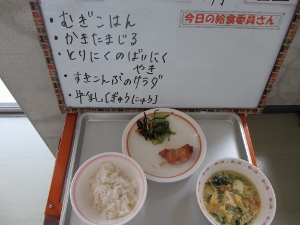 今日の給食委員さん
・むぎごはん
・かきたまじる
・とりにくのばいにく
やき
・すきこんぶのサラダ
・牛乳[ぎゅうにゅう]